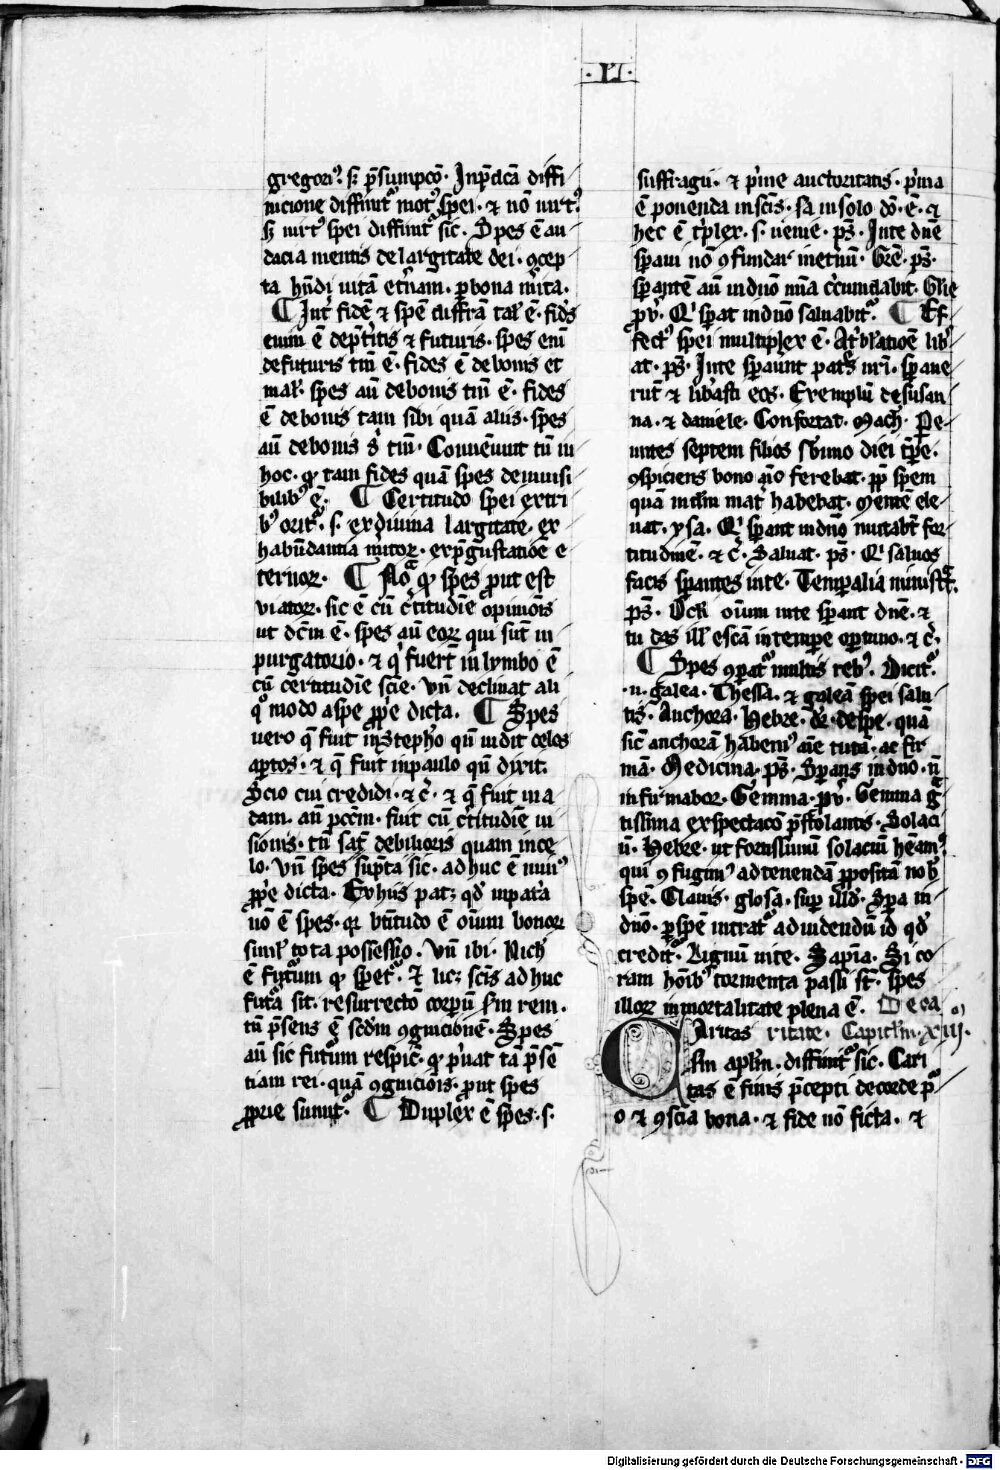 · VI ·
gregori⁹. s; p̄sumpcō. In p̄dc̄a diffi
nicione diffinit᷑ mot⁹ spei. ⁊ nō uirt⁹.
s; uirt⁹ spei diffinit᷑ sic. Spes ē au
dacia mentis de largitate dei. ꝯcep
ta hn̄di uitā et̄nam. ꝑ bona m̄ita.
¶ Int̄ fidē ⁊ spē diff̄ram tal' ē. fid's
enim ē de p̄t̄itis ⁊ futuris. spes enī
de futuris tm̄ ē. fides ē de bonis et
mal'. spes aū de bonis tm̄ ē. fides
ē de bonis tam sibi quā aliis. spes
aū de bonis s' tm̄. Conueniunt tn̄ in
hoc. ꝙ tam fides quā spes de inuisi
bilib⁹ ē. ¶ Certitudo spei ex tri
b⁹ orit᷑. s. ex diuina largitate. ex
habūdantia mitoꝝ. ex p̄gustatioē e
ternoꝝ. ¶ No᷑ ꝙ spes prout est
viatoꝝ. sic ē cū c̄titudīe opinioīs
ut dc̄m ē. spes aū eoꝝ qui sūt in
purgatorio. ⁊ q̄ fuert̄ in lymbo ē
cū certitudīe scīe. vn̄ declinat ali
q̊ modo a spe ꝓpe dicta. ¶ Spes
uero q̄ fuit in stepho qn̄ uidit celos
aꝑtos. ⁊ q̄ fuit in paulo qn̄ dixit.
Scio cui credidi. ⁊ c̄. ⁊ q̄ fuit in a
dam. an̄ pccm̄. fuit cū c̄titudīe ui
sionis. tn̄ sat̄ debilioris quam in ce
lo. Vn̄ spes sup̄ta sic. ad huc ē min⁹
ꝓpe dicta. Ex hiis pat; qd' in pat̄a
nō ē spes. qꝛ bt̄itudo ē oīum bonoꝝ
simul' tota possessio. Vn̄ ibi. Nich'
ē fut̄um ꝙ spet᷑. ⁊ luc; scīs ad huc
fut̄a sit. resurrectō corpū sm̄ rem.
tn̄ p̄sens ē scdm̄ ꝯgnicionē. Spes
aū sic fut̄um respic̄. ꝙ p̄uat tā p̄sē
tiam rei. quā ꝯgnicioīs. prout spes
ꝓprie sumit᷑. ¶ Duplex ē spes. s.
suffragii. ⁊ p̄me auctoritatis. p̄ma
ē ponenda in scīs. sa in solo dō. ē. ⁊
hec ē t̄plex. s. uenie. ps̄. In te dn̄e
spaui nō ꝯfundar in et̄nū. Grē. ps̄.
sꝑantē aū in dn̄o mīa c̄cumdabit. Glīe
pv̄. Qⁱ sꝑat in dn̄o saluabit᷑. ¶ Ef
fect⁹ spei multiplex ē. At̄bl'atioē lib'
at. ps̄. In te sꝑauerunt pat̄s nr̄i. sꝑaue
rūt ⁊ lib̄asti eos. Exemplū de susan
na. ⁊ daniele. Confortat. Mach'. Pe
untes septem filios s̄b uno diei t̄pe.
ꝯspiciens bono aīo ferebat. ꝓp̄ spem
quā in dm̄ mat̄ habebat. Mentē ele
uat. ysa. Qⁱ sꝑant in dn̄o mutabt̄ for
titudinē. ⁊ c̄. Saluat. ps̄. Qⁱ saluos
facis sꝑantes in te. Temꝑalia ministrat᷑.
ps̄. Ocl'i oīum in te sꝑant dn̄e. ⁊
tu das ill' escā in tempe oꝑtuno. ⁊ c̄.
¶ Spes ꝯpat᷑ multis reb⁹. Dicit᷑
.n. galea. Thessa. ⁊ galeā spei salu
tis. Anchora. Hebre. dr̄. de spe. quā
sic̄ anchorā habem⁹ aīe tutā. ac fir
mā. Medicina. ps̄. Sꝑans in dn̄o. n̄
infirmabor. Gemma. pv̄. Gemma g᷑
tissima exspectacō p̄stolantis. Solaci
ū. Hebre. ut fortissimū solaciū hēam⁹.
qui ꝯfugim⁹ ad tenendā ꝓpositā nob'
spē. Clauis. glosa. suꝑ illd'. Spa in
dn̄o. ꝑ spē intrat᷑ ad uidendū id qd'
credit᷑. Lignū uite. Sapīa. Si co
ram hoīb⁹ tormenta passi st̄. spes
illoꝝ inmortalitate plena ē. De ca
Caritas ritate. Capitl'm. xiij.
sm̄ apl'm. diffinit᷑ sic. Cari
tas ē finis p̄cepti de corde p᷑
o ⁊ ꝯscīa bona. ⁊ fide nō ficta. ⁊
Digitalisierung gefördert durch die Deutsche Forschungsgemeinschaft - DFG